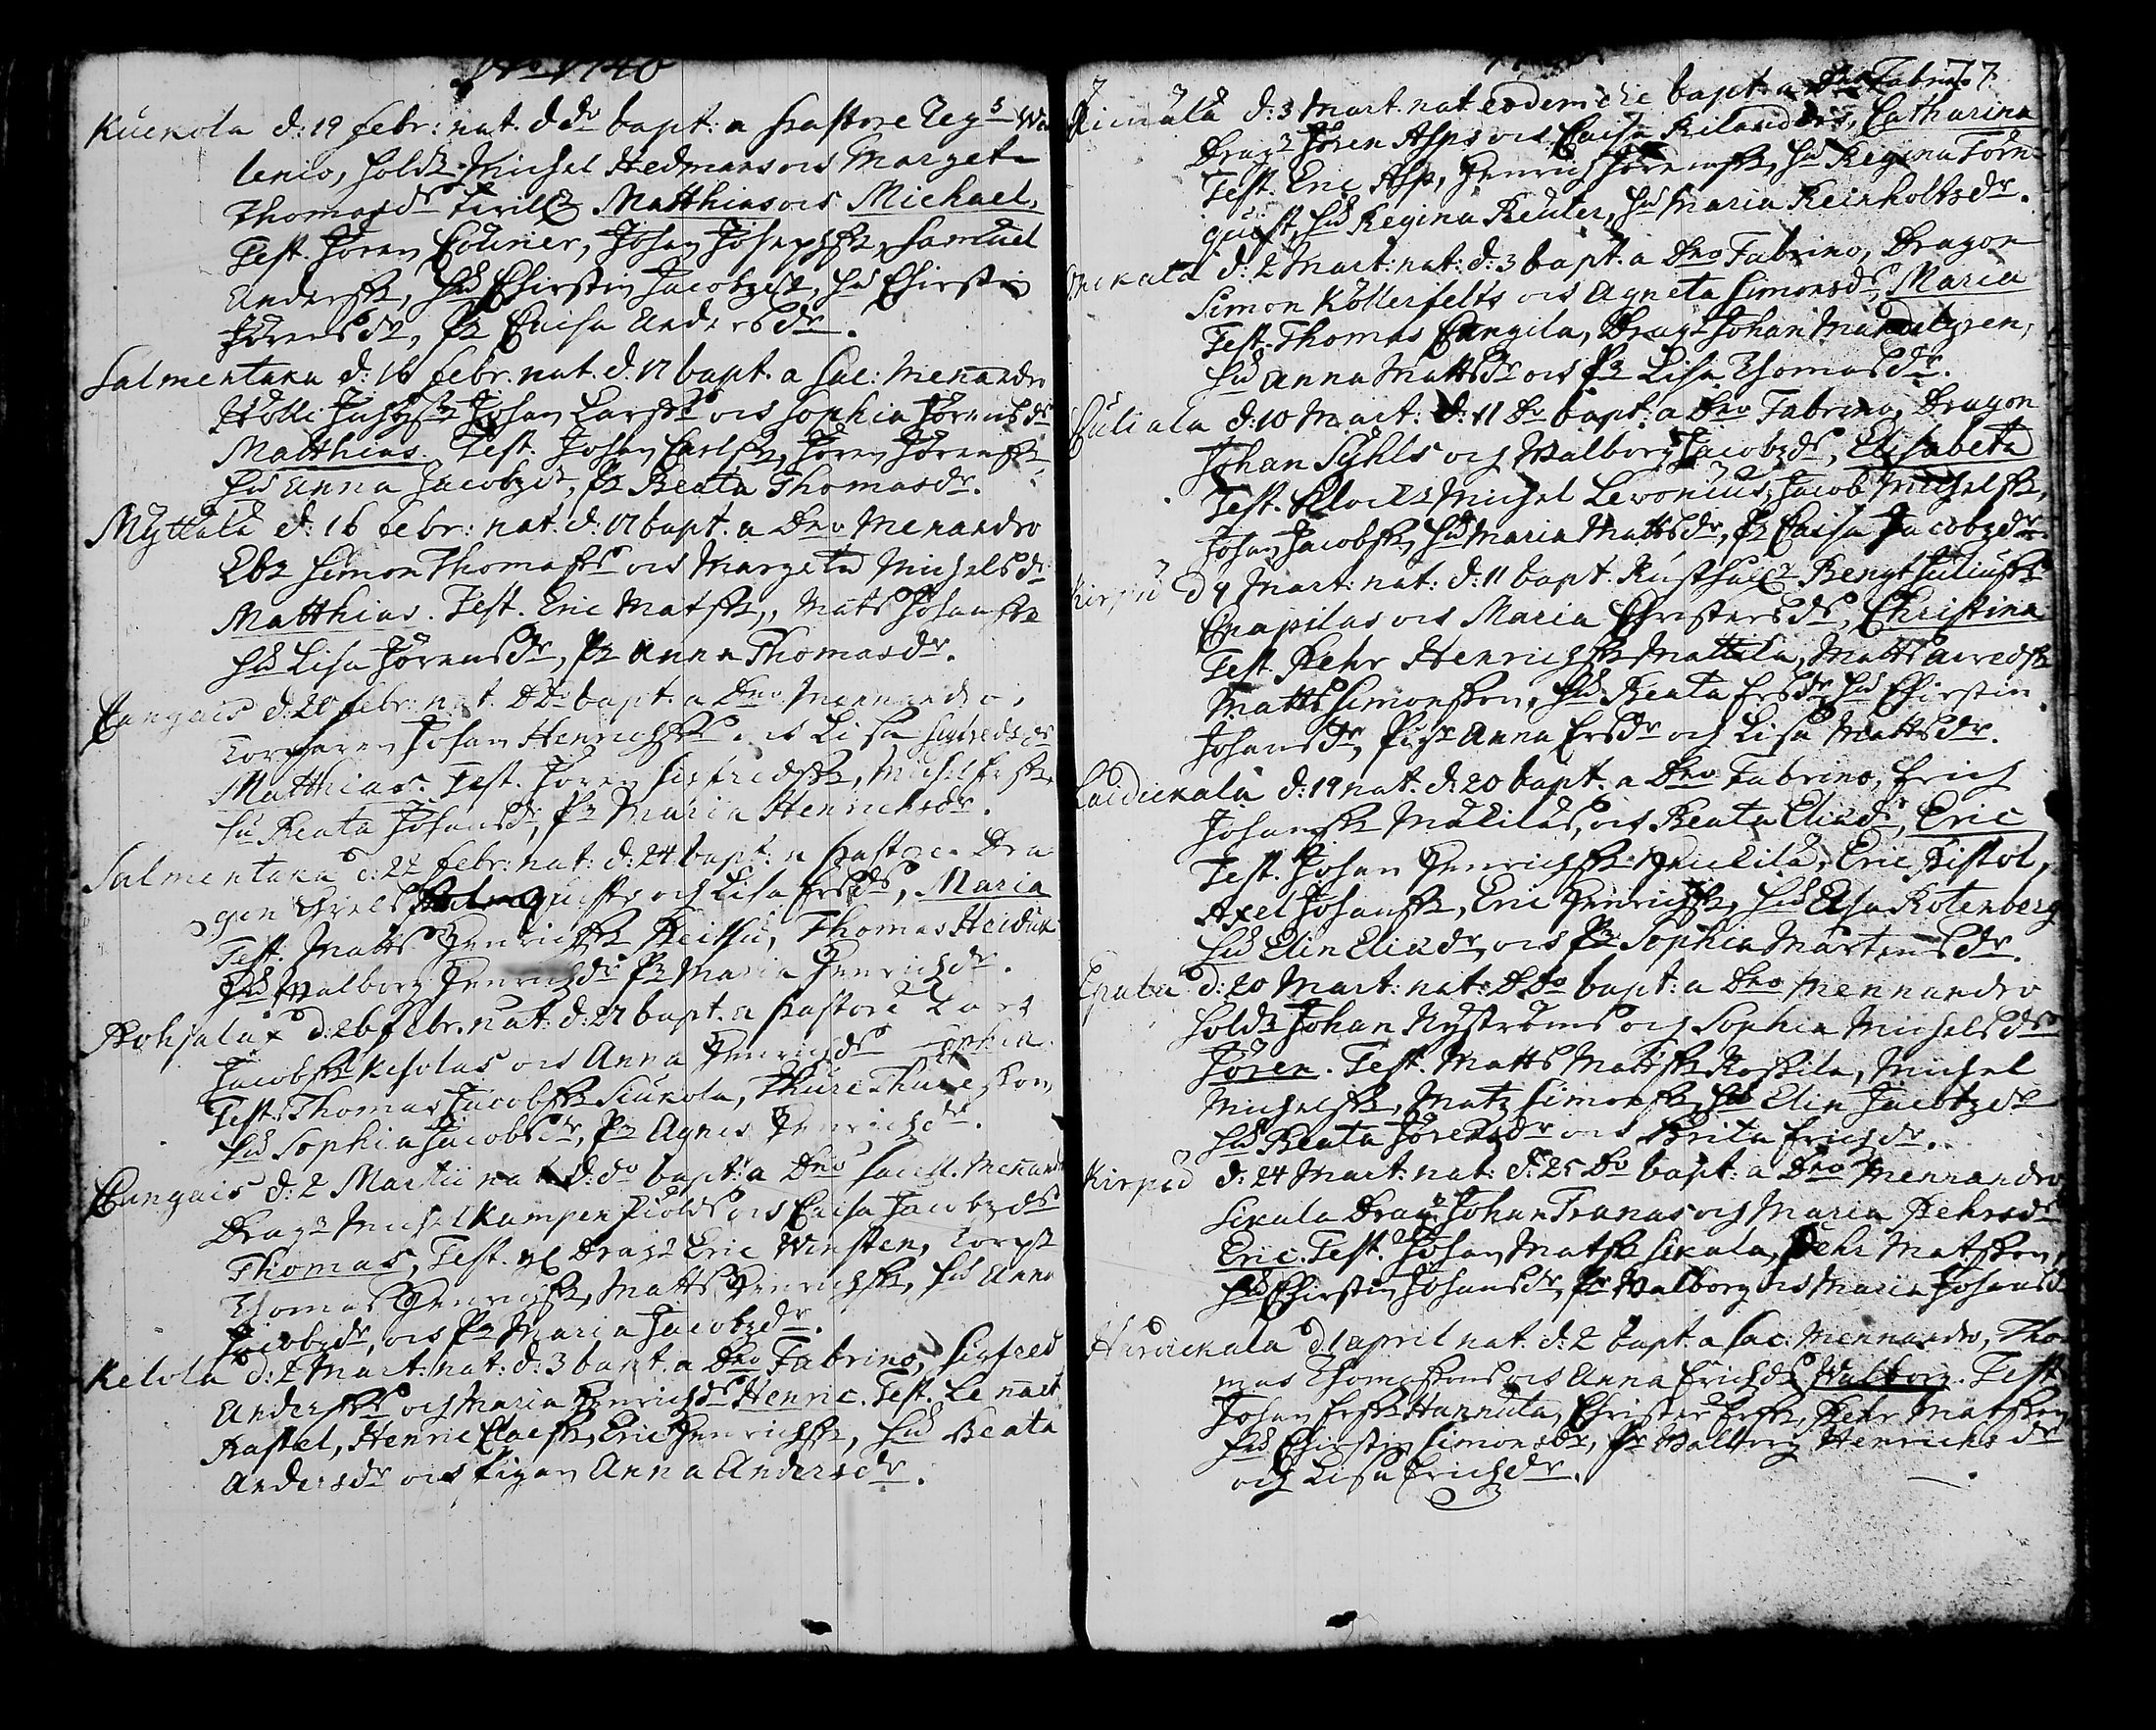 Ao 1740
Kuckola d: 19 febr: nat. d do bapt: a Pastore Reg:s Wa
lenio, Sold:r Michel Hedmans och Marget
Thomasdr Matthias och Michael,
Test. Jören Cörner, Johan Josephss:, Samuel
Anderss:, Hu Chirstin Jacobzdr, Hu Chirstin
Jörensdr, P: Caisa Andersdr.
Salmentaka d: 16 febr. nat. d. 17 bapt. a Sac: Mennandro
Johan Larss: och Sophia Jörensdr
Matthias. Test. Johan Carlss:, Jören Jörenss:
Hu Anna Jacobzdr, P: Beata Thomasdr.
Myttälä d: 16 febr: nat. d: 17 bapt. a Dno Menandro
Simon Thomass: och Margeta Michelsdr
Matthias. Test. Eric Matss:, Matts Johanss:
Hu Lisa Jörensdr, P: Anna Thomasdr.
Cangais d: 20 febr: nat. d do bapt. a Dno Mennandro,
Torparen Johan Henrichss: och Lisa Sigfredsdr
Matthias. Test. Jören Sigfredss:, Michel Erss:
Hu Beata Johansdr, P: Maria Henrichsdr.
Salmentaka d: 22 febr: nat: d: 24 bapt. a Pastore Dra
gon och Lisa Ersdr, Maria
Test. Matts Henrichss:, Thomas Heiduk
Hu Walborg Henrichsdr P: Maria Henrichsdr.
Pohjalax d: 26 febr. nat: d: 27 bapt. a Pastore Lars
Jacobss: och Anna Henrichsdr Sophia.
Test: Thomas Jacobss: Siukola, Thure Thuresson,
Hu Sophia Jacobsdr, P: Agnes Henrichsdr.
Cangais d: 2 Martii nat. d: do bapt: a Dno Sacell. Mennand
Drag:r Michel Kampenfiolds och Caisa Jacobzdr
Thomas, Test. Drag:r Eric Winsten, Torp:r
Thomas Henrichss:, Matts Henrichss:, Hu Anna
Jacobzdr, och P: Maria Jacobzdr.
Kelola d: 2 Mart: nat: d: 3 bapt. a Dno Fabrino, Sigfred
Anderss: och Maria Henrichsdr Henric. Test. Lennart
Kastel, Henric Claess:, Eric Henrichss:, Hu Beata
Andersdr och Pigan Anna Andersdr.
77.
d: 3 Mart. nat eodem die bapt: a Dno Fabrino
Drag:r Jören Asps och Caisa Kilanders, Catharina
Test. Eric Asp, Henrich Jörenss:, Hu Regina Törn
quist, Hu Regina Reuter, Hu Maria Reinholtsdr.
d: 2 Mart: nat: d: 3 bapt. a Dno Fabrino, Dragon
Simon Kollerfelts och Agneta Simonsdr, Maria
Test. Thomas Cangila, Drag:r Johan Mandelgren,
Hu Anna Mattsdr och P: Lisa Thomasdr.
d: 10 Mart: d: 11 Do bapt: a Dno Fabrino, Dragon
Johan Sÿhls och Walborg Jacobzdr, Elisabeta
Test. Michel Levonius, Jacob Michelss:,
Johan Jacobss:, Hu Maria Mattsdr, P: Caisa Jacobzdr
Kirpu d 9 Mart: nat: d: 11 bapt. Bengt Juliuss:
Knapilas och Maria Christersdr, Christina
Test. Pehr Henrichss: Mattila, Matts
Matts Simonsson, Hu Beata Ersdr, Hu Chirstin
Johansdr, Anna Ersdr och Lisa Mattsdr.
d: 19 nat. d: 20 bapt. a Dno Fabrino, Erich
Johanss: och Beata Eliædr, Eric
Test. Johan Henrichss:, Eric Pistol,
Axel Johanss:, Eric Henrichss:, Hu Elsa Rotenberg
Hu Elin Eliædr, och P: Sophia Mårtensdr.
d: 20 Mart: nat: d do bapt: a Dno Mennandro
Sold:r Johan Nyströms och Sophia Michelsdr
Jören. Test. Matts Matss:, Michel
Michelss:, Matz Simonss:, Hu Elin Jacobzdr
Hu Beata Jörensdr och Brita Erichsdr.
Kirpu d: 24 Mart: nat: d: 25 Do bapt: a Dno Mennandro
Sikala Drag:r Johan Tranas och Maria Pehrsdr
Eric. Test. Johan Matss: Sikala, Pehr Matsson,
Hu Chirstin Johansdr, P: Walborg och Maria Johansdr
d 1 April nat. d: 2 bapt. a Sac: Mennandro, Tho
mas Thomassons och Anna Erichsdr Walborg. Test.
Johan Erss: Hannula, Christer Erss:, Pehr Matsson
Hu Chirstin Simonsdr, P: Walborg Henrichsdr
och Lisa Erichsdr.